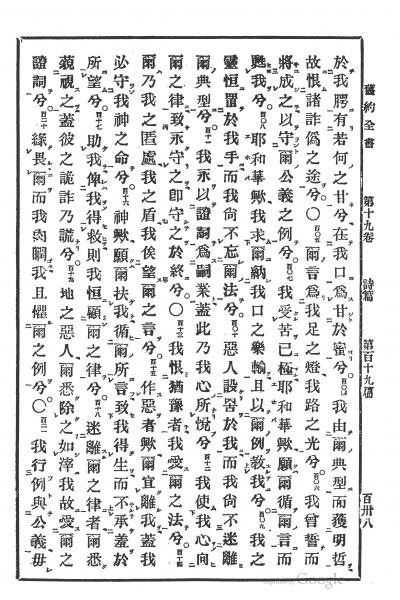 舊約全書 第十九卷 詩篇 第百十九篇 百卅八
於我腭有若何之甘兮在我口爲甘於蜜兮。百〇四我由爾典型而獲明哲
故恨諸詐僞之途兮。〇百〇五爾言爲我足之燈我路之光兮。百〇六我曾誓而
將成之以守爾公義之例兮。百〇七我受苦已極耶和華歟願爾循爾言而
甦我兮。百〇八耶和華歟我求爾納我口之樂輸且以爾例教我兮。百〇九我之
靈恒置於我手而我尙不忘爾法兮。百十惡人設罟於我而我尙不迷離
爾典型兮。百十一我永以證詞爲嗣業蓋此乃我心所悅兮。百十二我使我心向
爾之律致永守之卽守之於終兮。〇百十三我恨猶豫者我愛爾之法兮。百十四
爾乃我之匿處我之盾我俟望爾之言兮。百十五作惡者歟爾宜離我蓋我
必守我神之命兮。百十六神歟願爾扶我循爾所言致我得生而不承羞於
所望兮。百十七助我俾我得救則我恒顧爾之律兮。百十八迷離爾之律者爾悉
藐視之蓋彼之詭詐乃謊兮。百十九地之惡人爾悉除之如滓我故愛爾之
證詞兮。百二十緣畏爾而我肉顫我且懼爾之例兮。〇百二一我行例與公義毋
Google